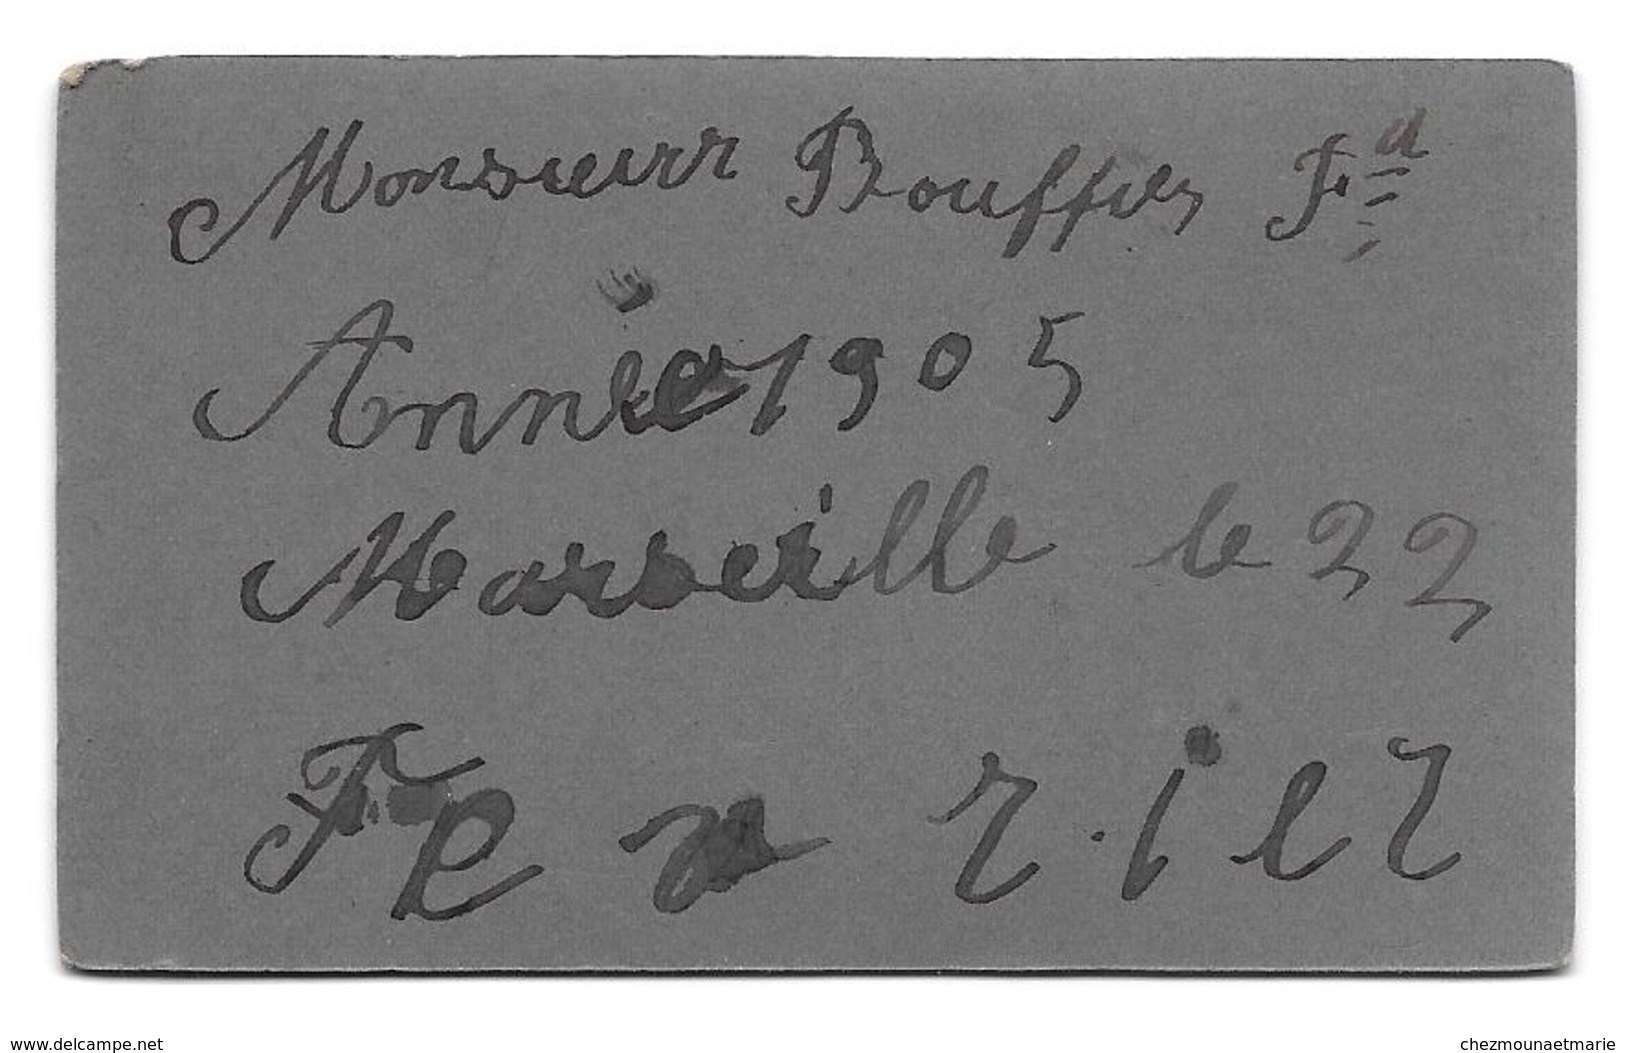 Monsieur Bouffier Fd
Année 1905
Marseille le 22
Fevrier
www.delcampe.net
chezmounaetmarie